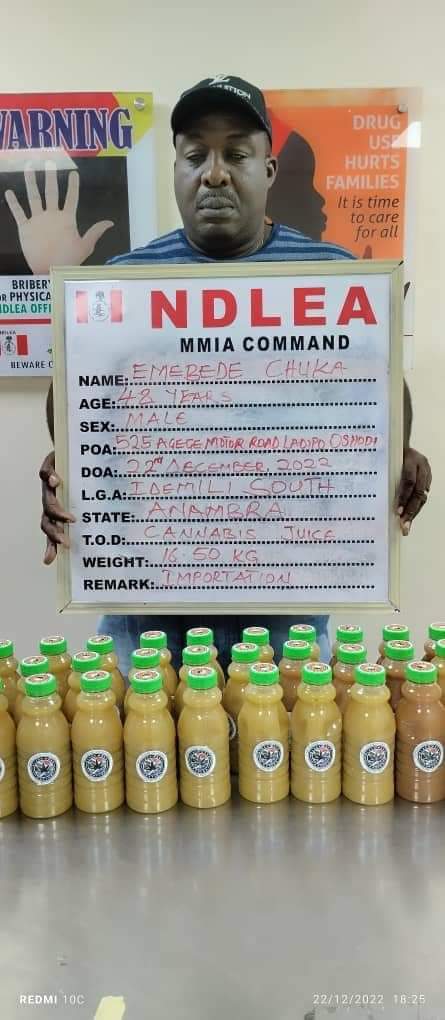 WARNING
BRIBERY
OR PHYSICA
NDLEA OFFI
NDLEA
BEWARE
DRUG
USE
HURTS
FAMILIES
It is time
to care
for all
NDLEA
MMIA COMMAND
NAME: EMEBEDE CHUKA
AGE: 48 YEARS
SEX: MALE
POA: 525 AGEGE MOTOR ROAD LADIPO, OSHODI
DOA: 22nd DECEMBER, 2022
L.G.A: IDEMILI SOUTH
STATE: ANAMBRA
T.O.D: CANNABIS JUICE
WEIGHT: 16.50 KG
REMARK: IMPORTATION
REDMI 10C
22/12/2022 18:25